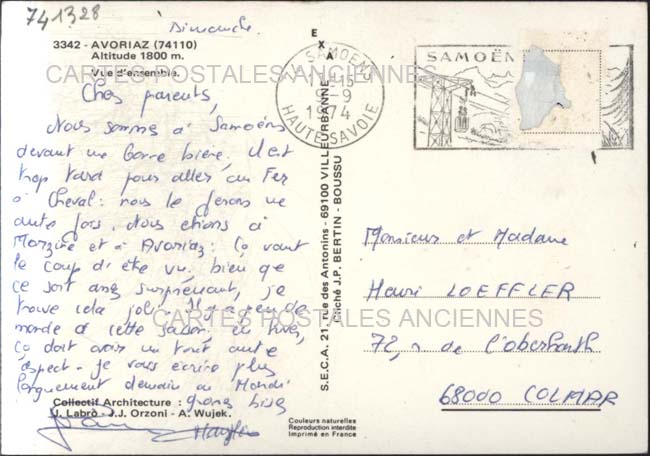 741328
Dimanche
3342 - AVORIAZ (74110)
Altitude 1800 m.
Vue d'ensemble.
CARTES POSTALES ANCIENNES
Chers parents,
Nous sommes à Samoëns
devant une bonne bière, il est
trop tard pour aller au Fer
à Cheval: nous le ferons une
autre fois. Nous étions à
Morzine et à Avoriaz: ça vaut
le coup d'être vu, bien que
ce soit assez surprenant, je
trouve cela joli. Il y a peu de
monde à cette saison. En hiver,
CARTES POSTALES ANCIENNES
ça doit avoir un tout autre
aspect. Je vous écrirai plus
longuement demain ou Mardi
grosses bises
Collectif Architecture :
J. Labro - J.J. Orzoni - A. Wujek.
EXA
S.E.C.A. 21, rue des Antonins - 69100 VILLEURBANNE
Cliché J.P. BERTIN - BOUSSU
Couleurs naturelles
Reproduction interdite
Imprimé en France
SAMOENS
9-9
1974
HAUTE SAVOIE
SAMOËN
Monsieur et Madame
Henri LOEFFLER
72, r de l'oberharth
68000 COLMAR